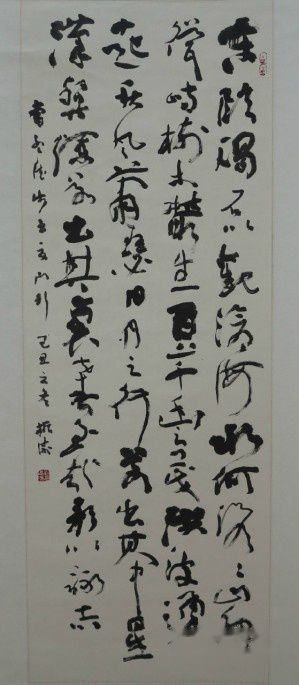 東臨碣石以觀滄海水何澹〻山島
聳峙樹木叢生百草豐茂洪波湧
起秋風蕭瑟日月之行若出其中星
漢粲爛若出其里幸甚至哉歌以詠志
曹孟德步出夏門行 己丑之冬